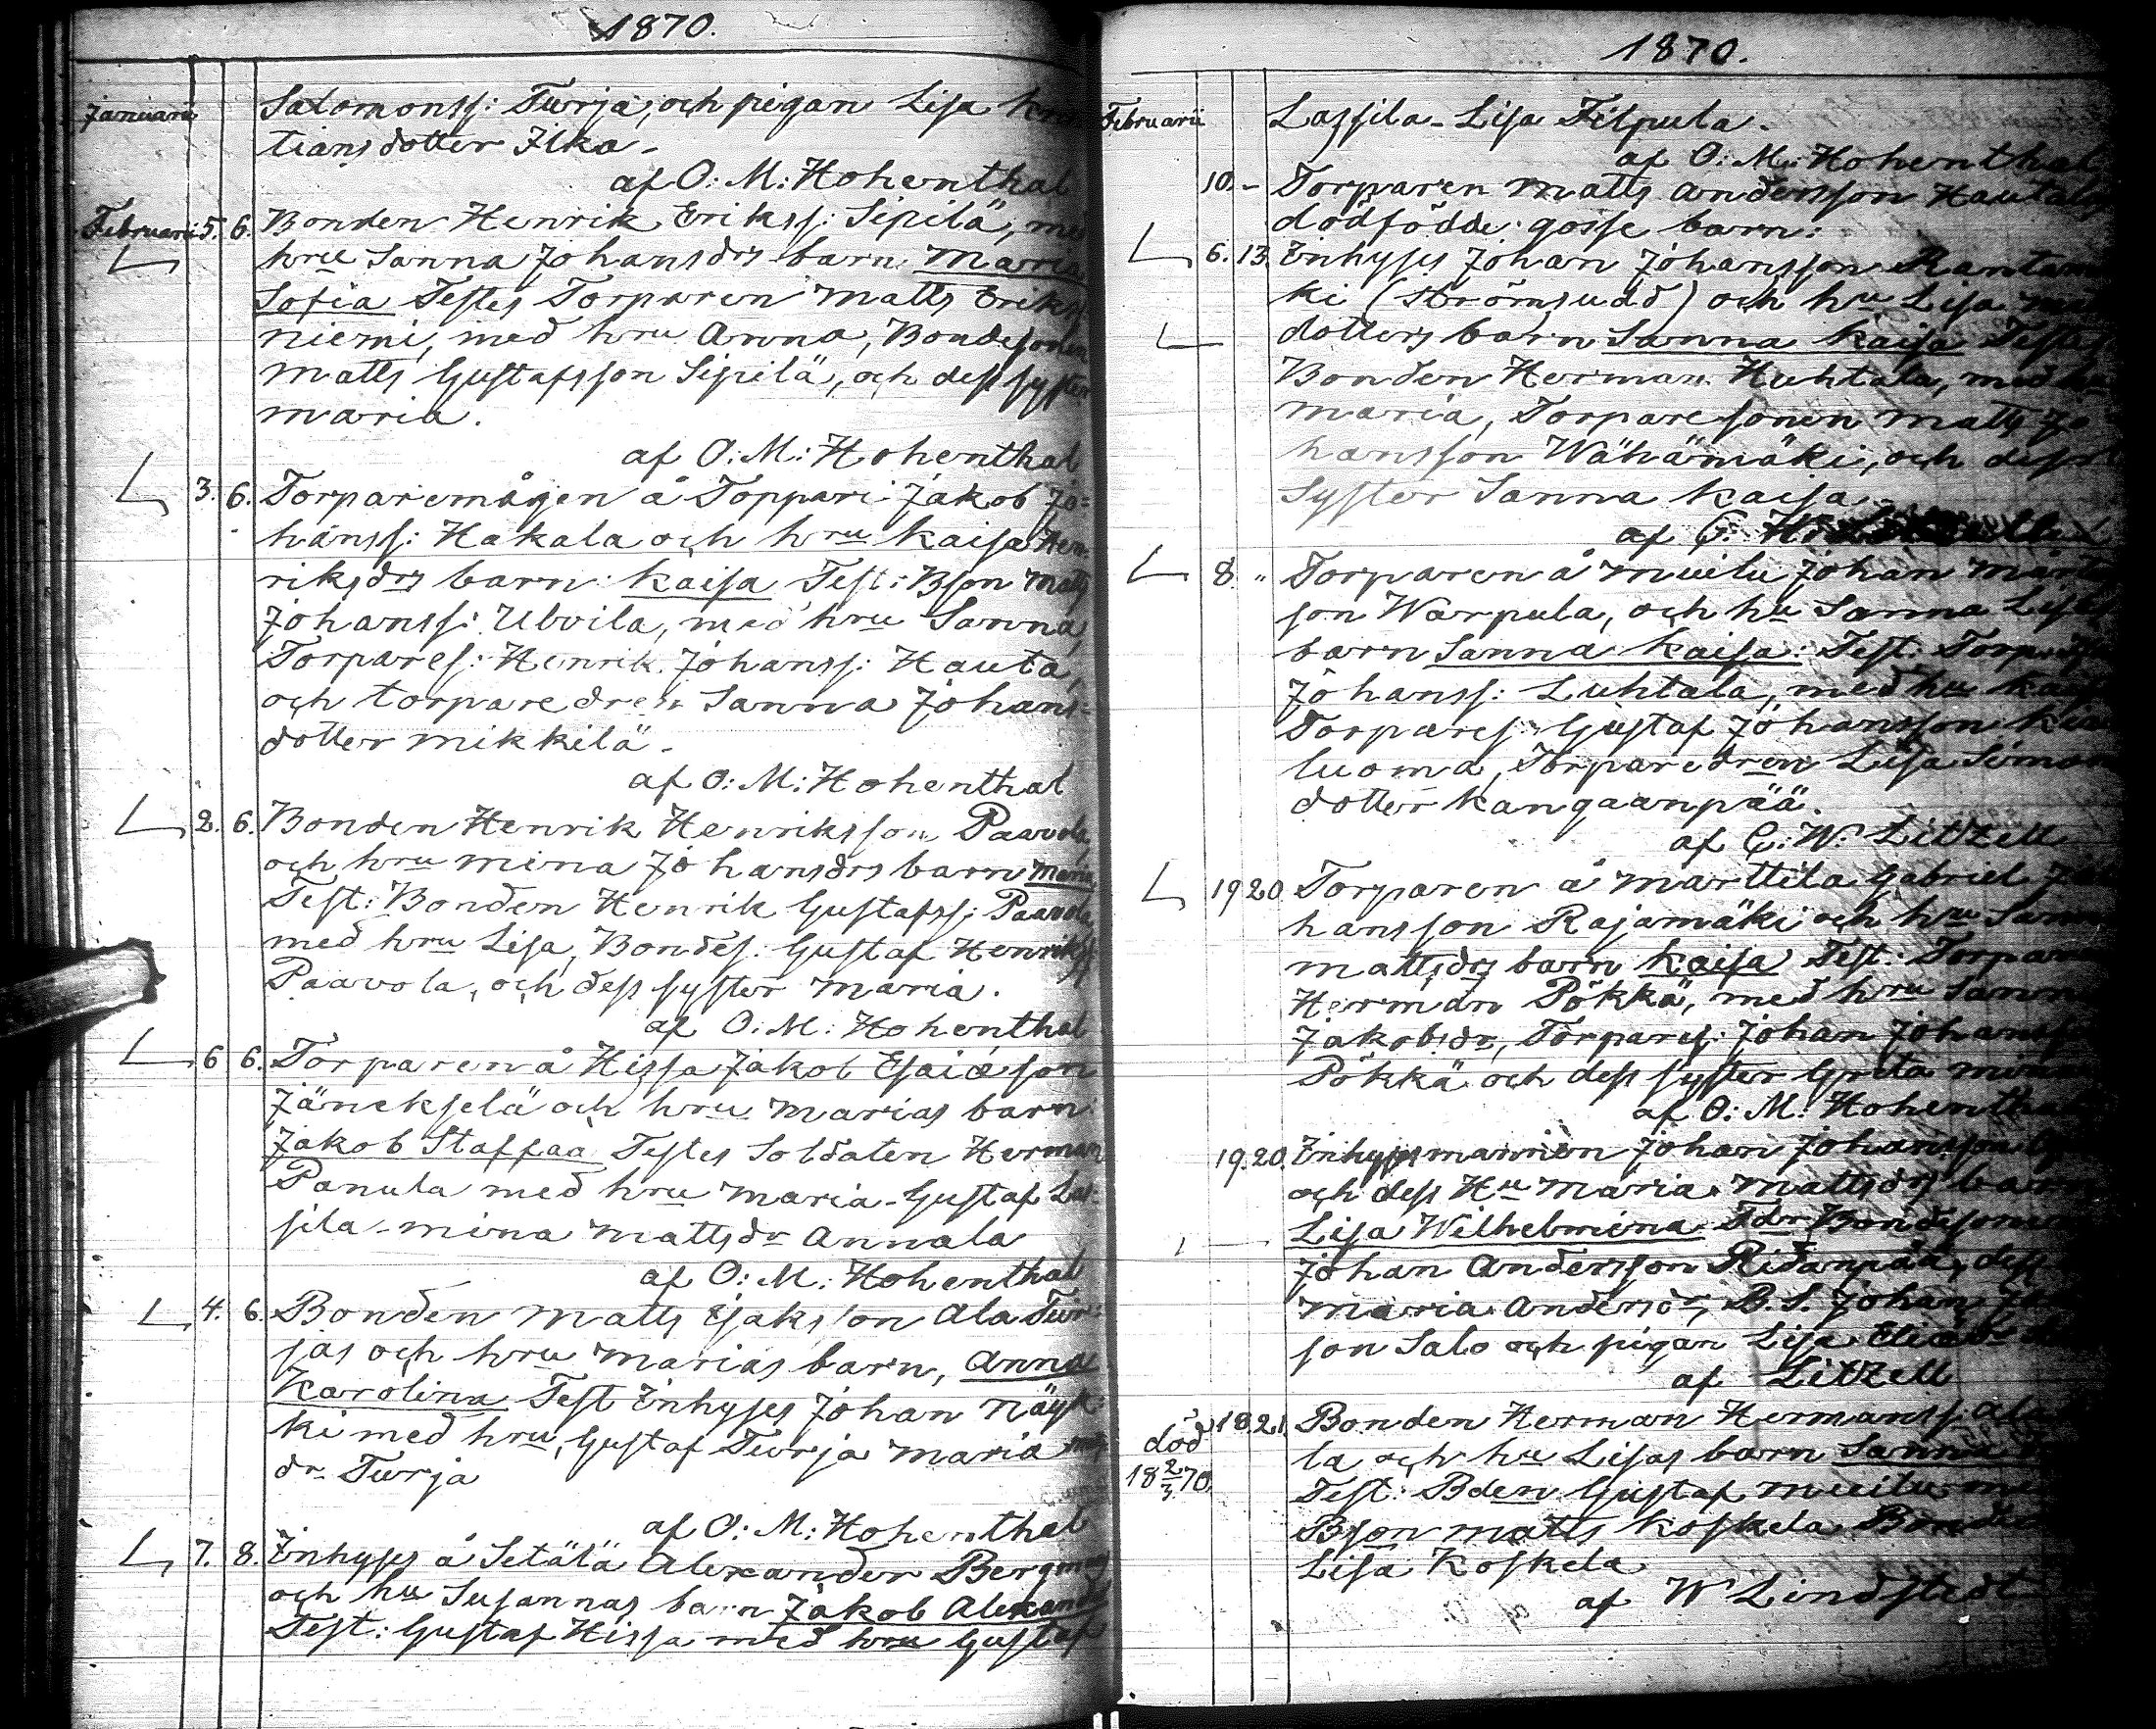 1870.
Januarii Salomonss: Turja, och pigan Lisa
tiansdotter Ilka.
af O: M: Hohenthal
Februarii 5. 6. Bonden Henrik Erikss: Sipilä, med
hru Sanna Johansdrs barn Maria
Sofia Testes Torparen Matts Erikss
niemi, med hru Anna, Bondesonen
Matts Gustafsson Sipilä, och dess syster
Maria.
af O: M: Hohenthal
3. 6. Torparemågen å Toppari Jakob Jo-
hanss: Hakala och hru Kaisa Hen-
riksdrs barn: Kaisa Test: Bson Matts
Johanss: Ulvila, med hru Sanna,
Torpares: Henrik Johanss: Hauta,
och torparedren Sanna Johans-
dotter Mikkilä.
af O: M: Hohenthal
2. 6. Bonden Henrik Henriksson Paavola,
och hru Mina Johansdrs barn Maria
Test: Bonden Henrik Gustafss: Paavola,
med hru Lisa, Bondes: Gustaf Henrikss
Paavola, och dess syster Maria.
af O: M: Hohenthal
6 6. Torparen å Hissa Jakob Esaiæson
Jänekselä och hru Marias barn
Jakob Staffaa Testes Soldaten Herman
Panula med hru Maria - Gustaf Las-
sila - Mina Mattsdr Annala
af O: M: Hohenthal
4. 6. Bonden Matts Esakson Ala Tur-
jas och hru Marias barn, Anna
Karolina Test Inhyses Johan Näyk-
ki med hru, Gustaf Turja Maria
dr Turja
af O: M: Hohenthal
7. 8. Inhyses å Setälä Alexander Bergman
och hu Susannas barn Jakob Alexander
Test: Gustaf Hissa med hru Gustaf
1870.
Februarii Lassila - Lisa Filpula.
af O: M: Hohenthal
10. - Torparen Matts Andersson Hautala
dödfödde gosse barn:
6. 13. Inhyses Johan Johansson
ki (Strömsudd) och hu Lisa
dotters barn Sanna Kaisa Testes
Bonden Herman Huhtala, med hu
Maria, Torparesonen Matts Jo-
hansson Wähämäki, och dess
Syster Sanna Kaisa.
af
8. " Torparen å Muilu Johan Mårts
son Warpula, och hu Sanna
barn Sanna Kaisa: Test: Torp:
Johanss: Luhtala, med hu Kaisa
Torpares: Gustaf Johansson
luoma, Torparedren Lisa Simons
dotter Kangaanpää.
af C: W: Litzell
19 20 Torparen å Marttila Gabriel Jo
hansson Rajamäki och hru Sanna
Mattsdrs barn Kaisa Test: Torparen
Herman Pökkä, med hru Sanna
Jakobsdr, Torpares: Johan Johanss
Pökkä och dess syster Greta Mina
af O: M: Hohenthal
19. 20. Inhyses mannen Johan Johansson
och dess Hu Maria Mattsdrs barn
Lisa Wilhelmina Bondesonen
Johan Andersson Ridanpää, dess
Maria Andersdr, B. S. Johan
son Salo och pigan Lisa
af Litzell
död 18 2/3 70. 18. 21. Bonden Herman Hermanss:
la och hu Lisas barn Sanna
Test: Bden Gustaf Muilu
Bson Matts Koskela
Lisa Koskela
af W Lindstedt